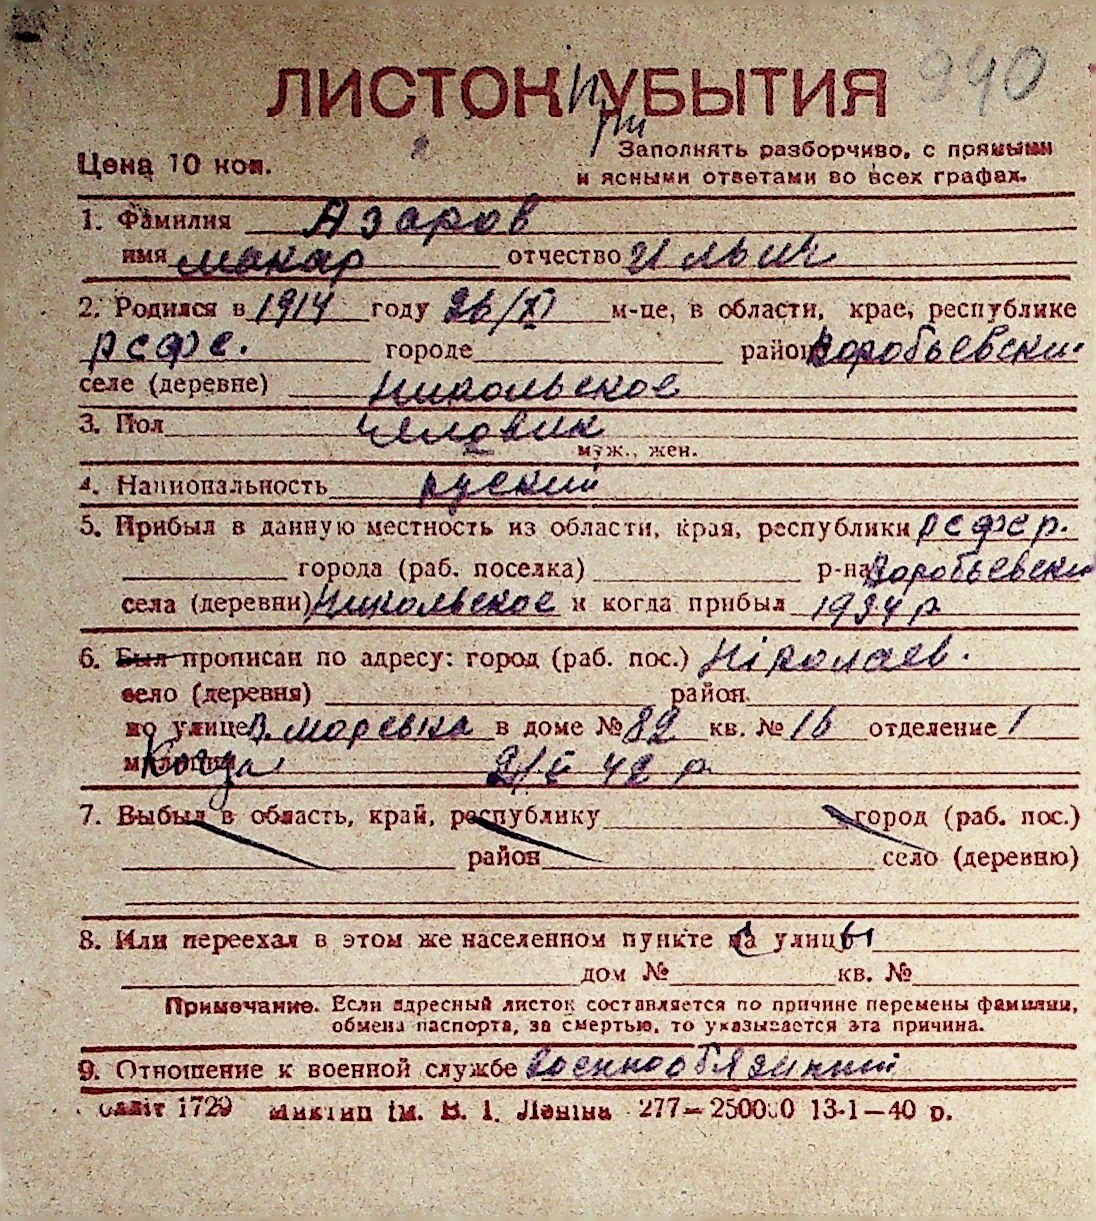 940
ЛИСТОК УБЫТИЯ
при
Цена 10 коп.
Заполнять разборчиво, с прямыми
и ясными ответами во всех графах.
1. Фамилия Азаров
имя макар отчество Ильич
2. Родился в 1914 году 26/XI м-це, в области, крае, республике
рсфс. городе район Воробьевски
селе (деревне) Никольское
3. Пол
муж., жен.
4. Национальность руский
5. Прибыл в данную местность из области, края, республики рсфср.
города (раб. поселка) р-на Воробьевски
села (деревни) Никольское и когда прибыл 1934 р
6. Был прописан по адресу: город (раб. пос.) Ніколаев.
село (деревня) район
по улице В. моревка в доме № 82 кв. № 16 отделение 1
милиции Когда 2/V 42 р
7. Выбыл в область, край, республику город (раб. пос.)
район село (деревню)
8. Или переехал в этом же населенном пункте с улицы
дом № кв. №
Примечание. Если адресный листок составляется по причине перемены фамилии,
обмена паспорта, за смертью, то указывается эта причина.
9. Отношение к военной службе военнообязиний
1729 ім. В. І. Леніна 277—250000 13-1—40 р.